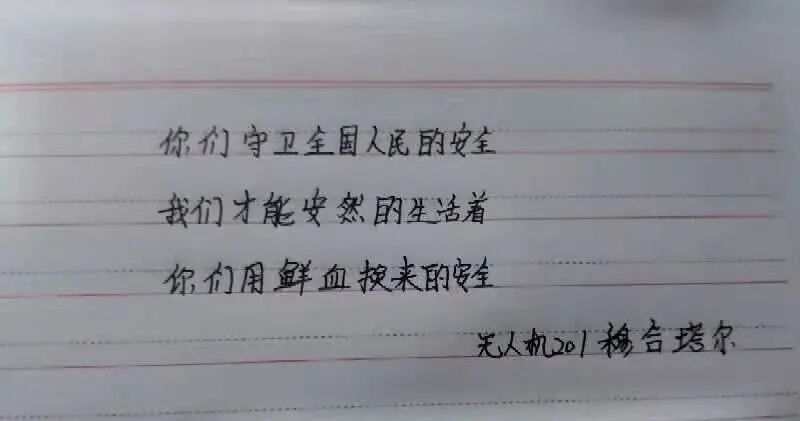 你们守卫全国人民的安全
我们才能安然的生活着
你们用鲜血换来的安全
无人机201 穆合塔尔